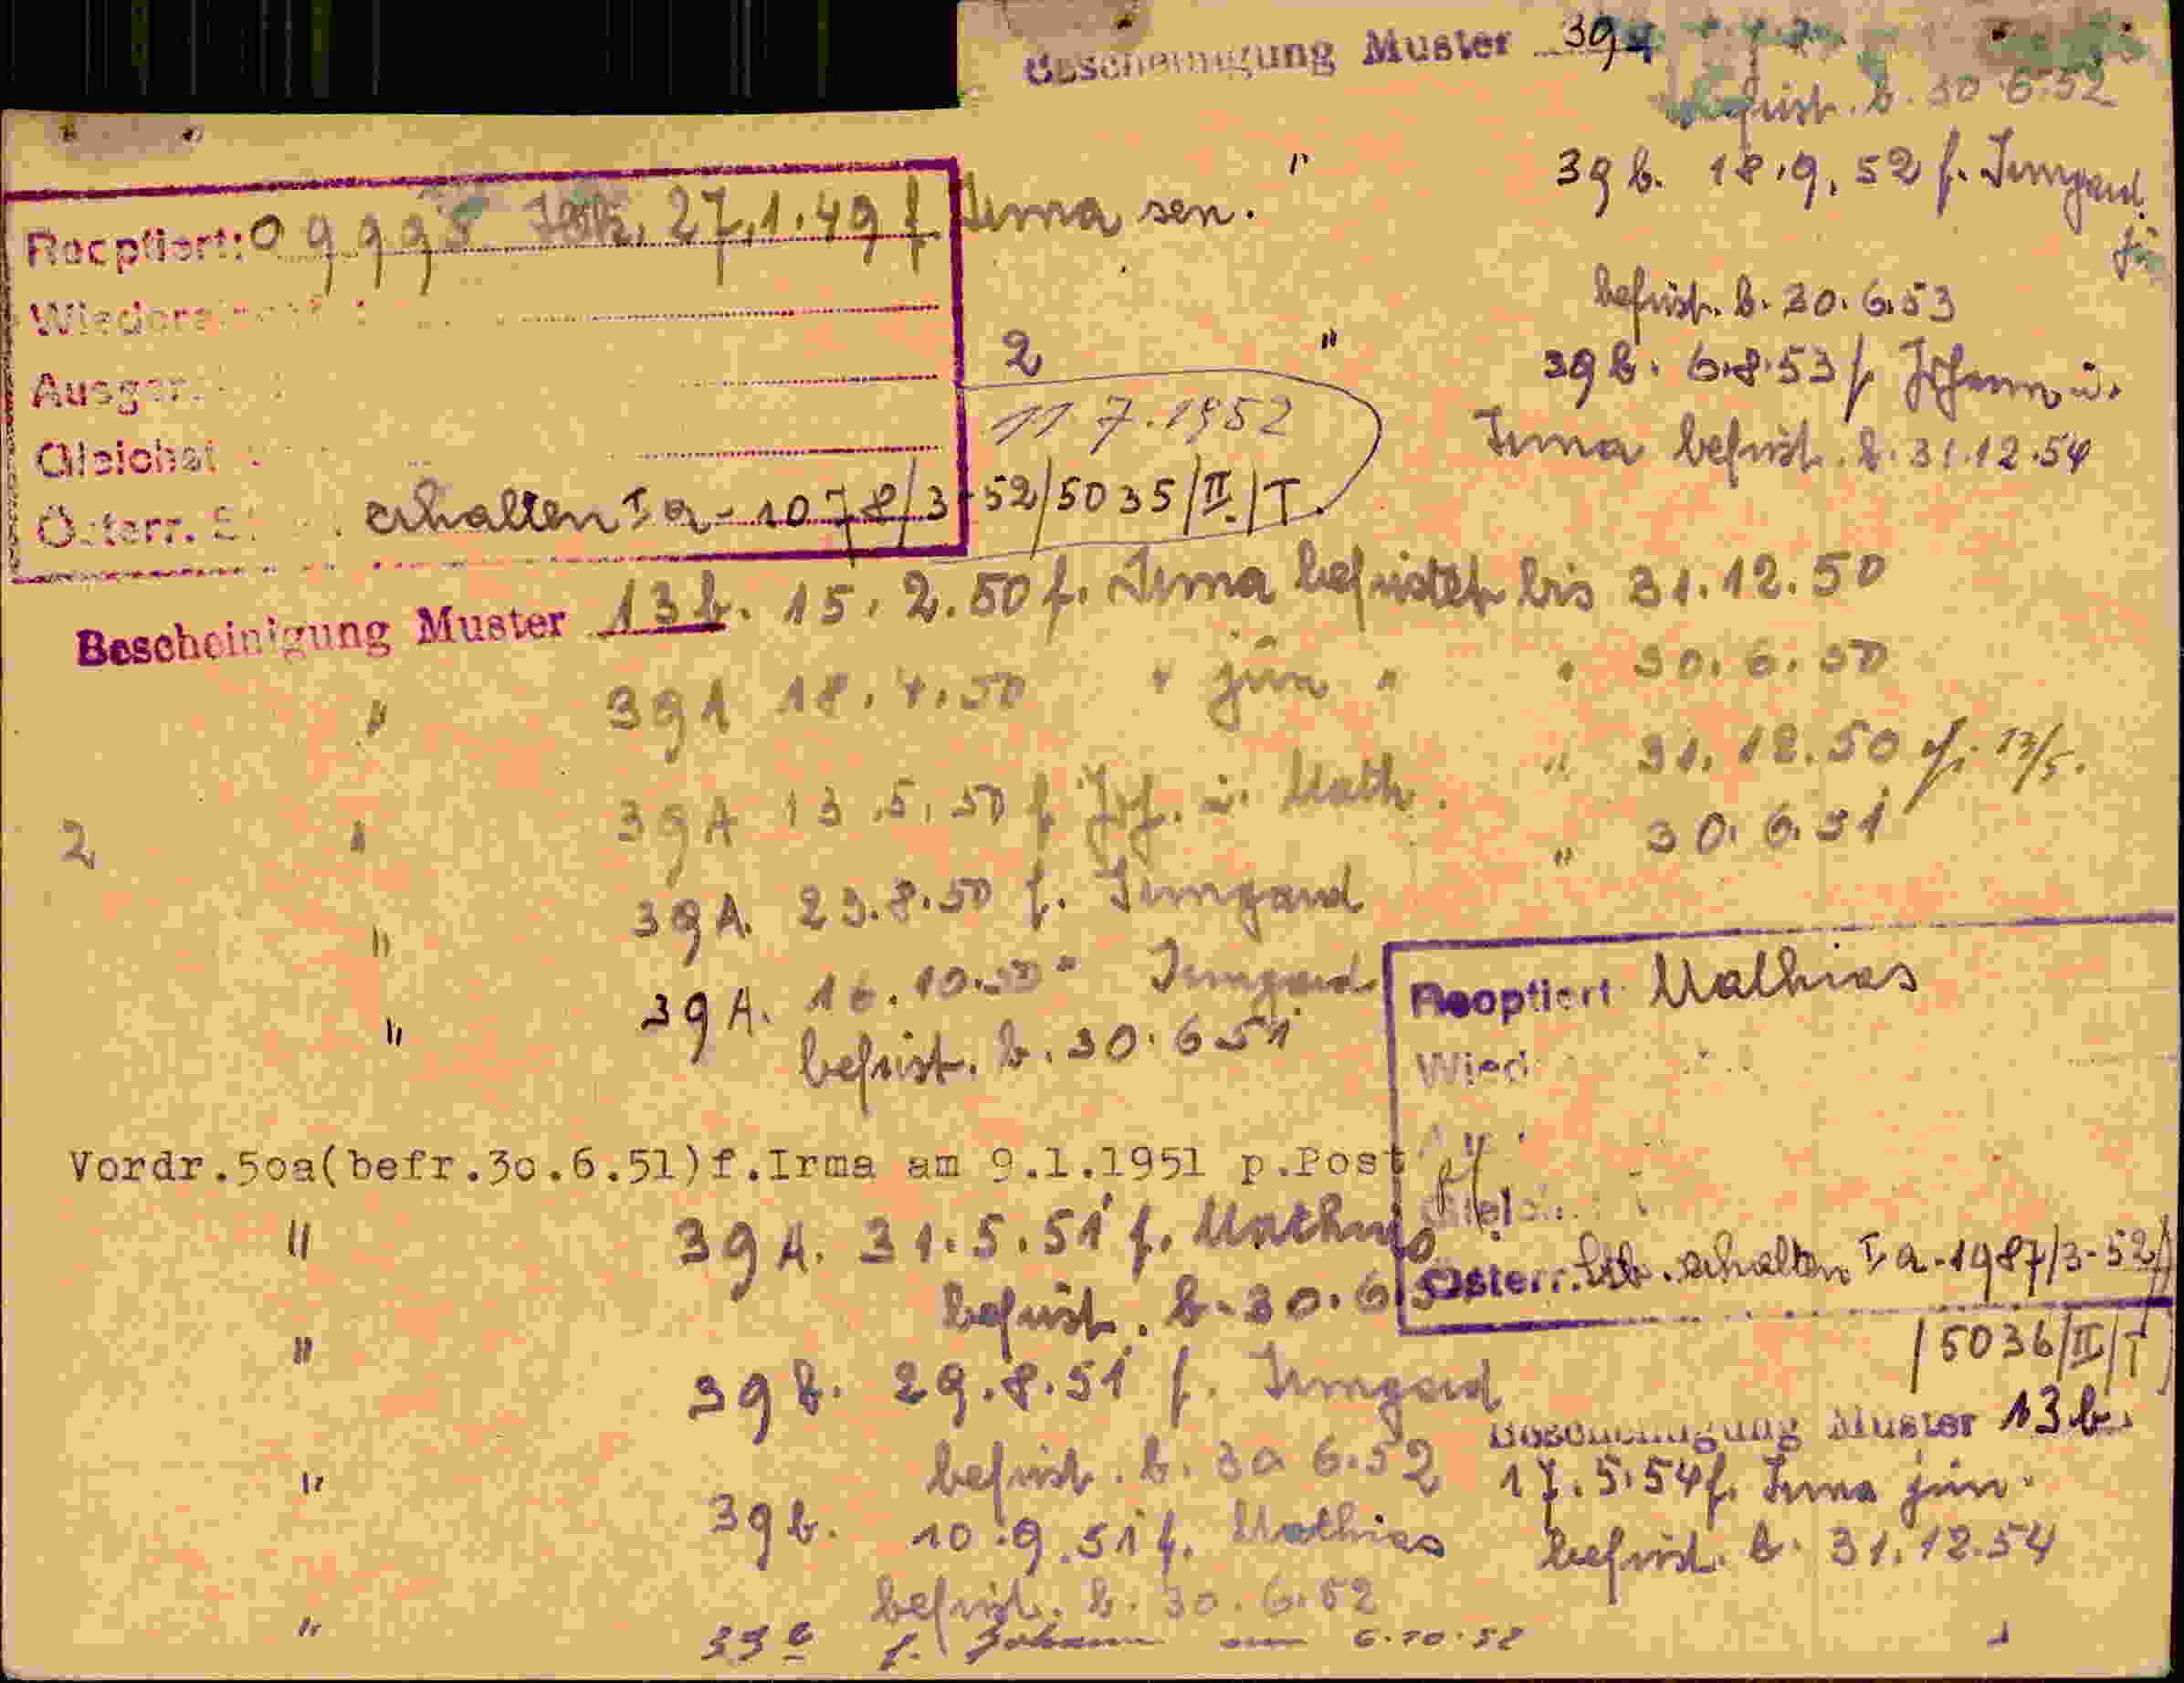 Bescheinigung Muster 39
befrist. b. 30.6.52
" 39 b. 18.9.52 f. Irmgard
jün
befrist. b. 30.6.53
2 " 39 b. 6.8.53 f. Johann ü.
Irma befrist. b. 31.12.54
Recptiert: 27.1.49 f Irma sen.
Ausger.
Gleichst
11 7.1952
Österr. erhalten I a - 1078/3-52/5035/II./T.
Bescheinigung Muster 13 b. 15.2.50 f. Irma befristet bis 31.12.50
" 39 A 18.4.50 " jün " " 30.6.50
2 " 39 A 13.5.50 f Joh. ü. Math. " 31.12.50 13/5.
" 39 A. 23.8.50 f. Irmgard " 30.6.51
" 39 A. 16.10.50 " Irmgard
befrist. b. 30.6 51
Reoptiert Mathias
Wied
Österr. erhalten I a - 1987/3-52/
/5036/II/T
Vordr.5oa(befr.3o.6.51)f.Irma am 9.1.1951 p.Post
" 39 A. 31.5.51 f. Mathias
befrist. b. 30.6.5
" 39 b. 29.8.51 f. Irmgard
befrist. b. 30 6.52
" 39 b. 10.9.51 f. Mathias
befrist. b. 30.6.52
" 39 b f. Johann am 6.10.52
Bescheinigung Muster 13 b.
17.5.54 f. Irma jün.
befrist. b. 31.12.54